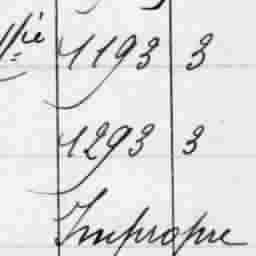 1193 3
1293 3
Impropre